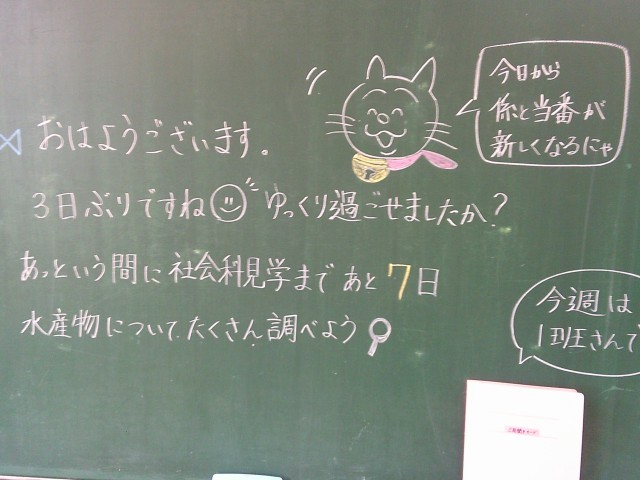 今日から
係と当番が
新しくなるにゃ
おはようございます。
3日ぶりですね ゆっくり過ごせましたか?
あっという間に社会科見学まであと7日
水産物についてたくさん調べよう
今週は
1班さんで